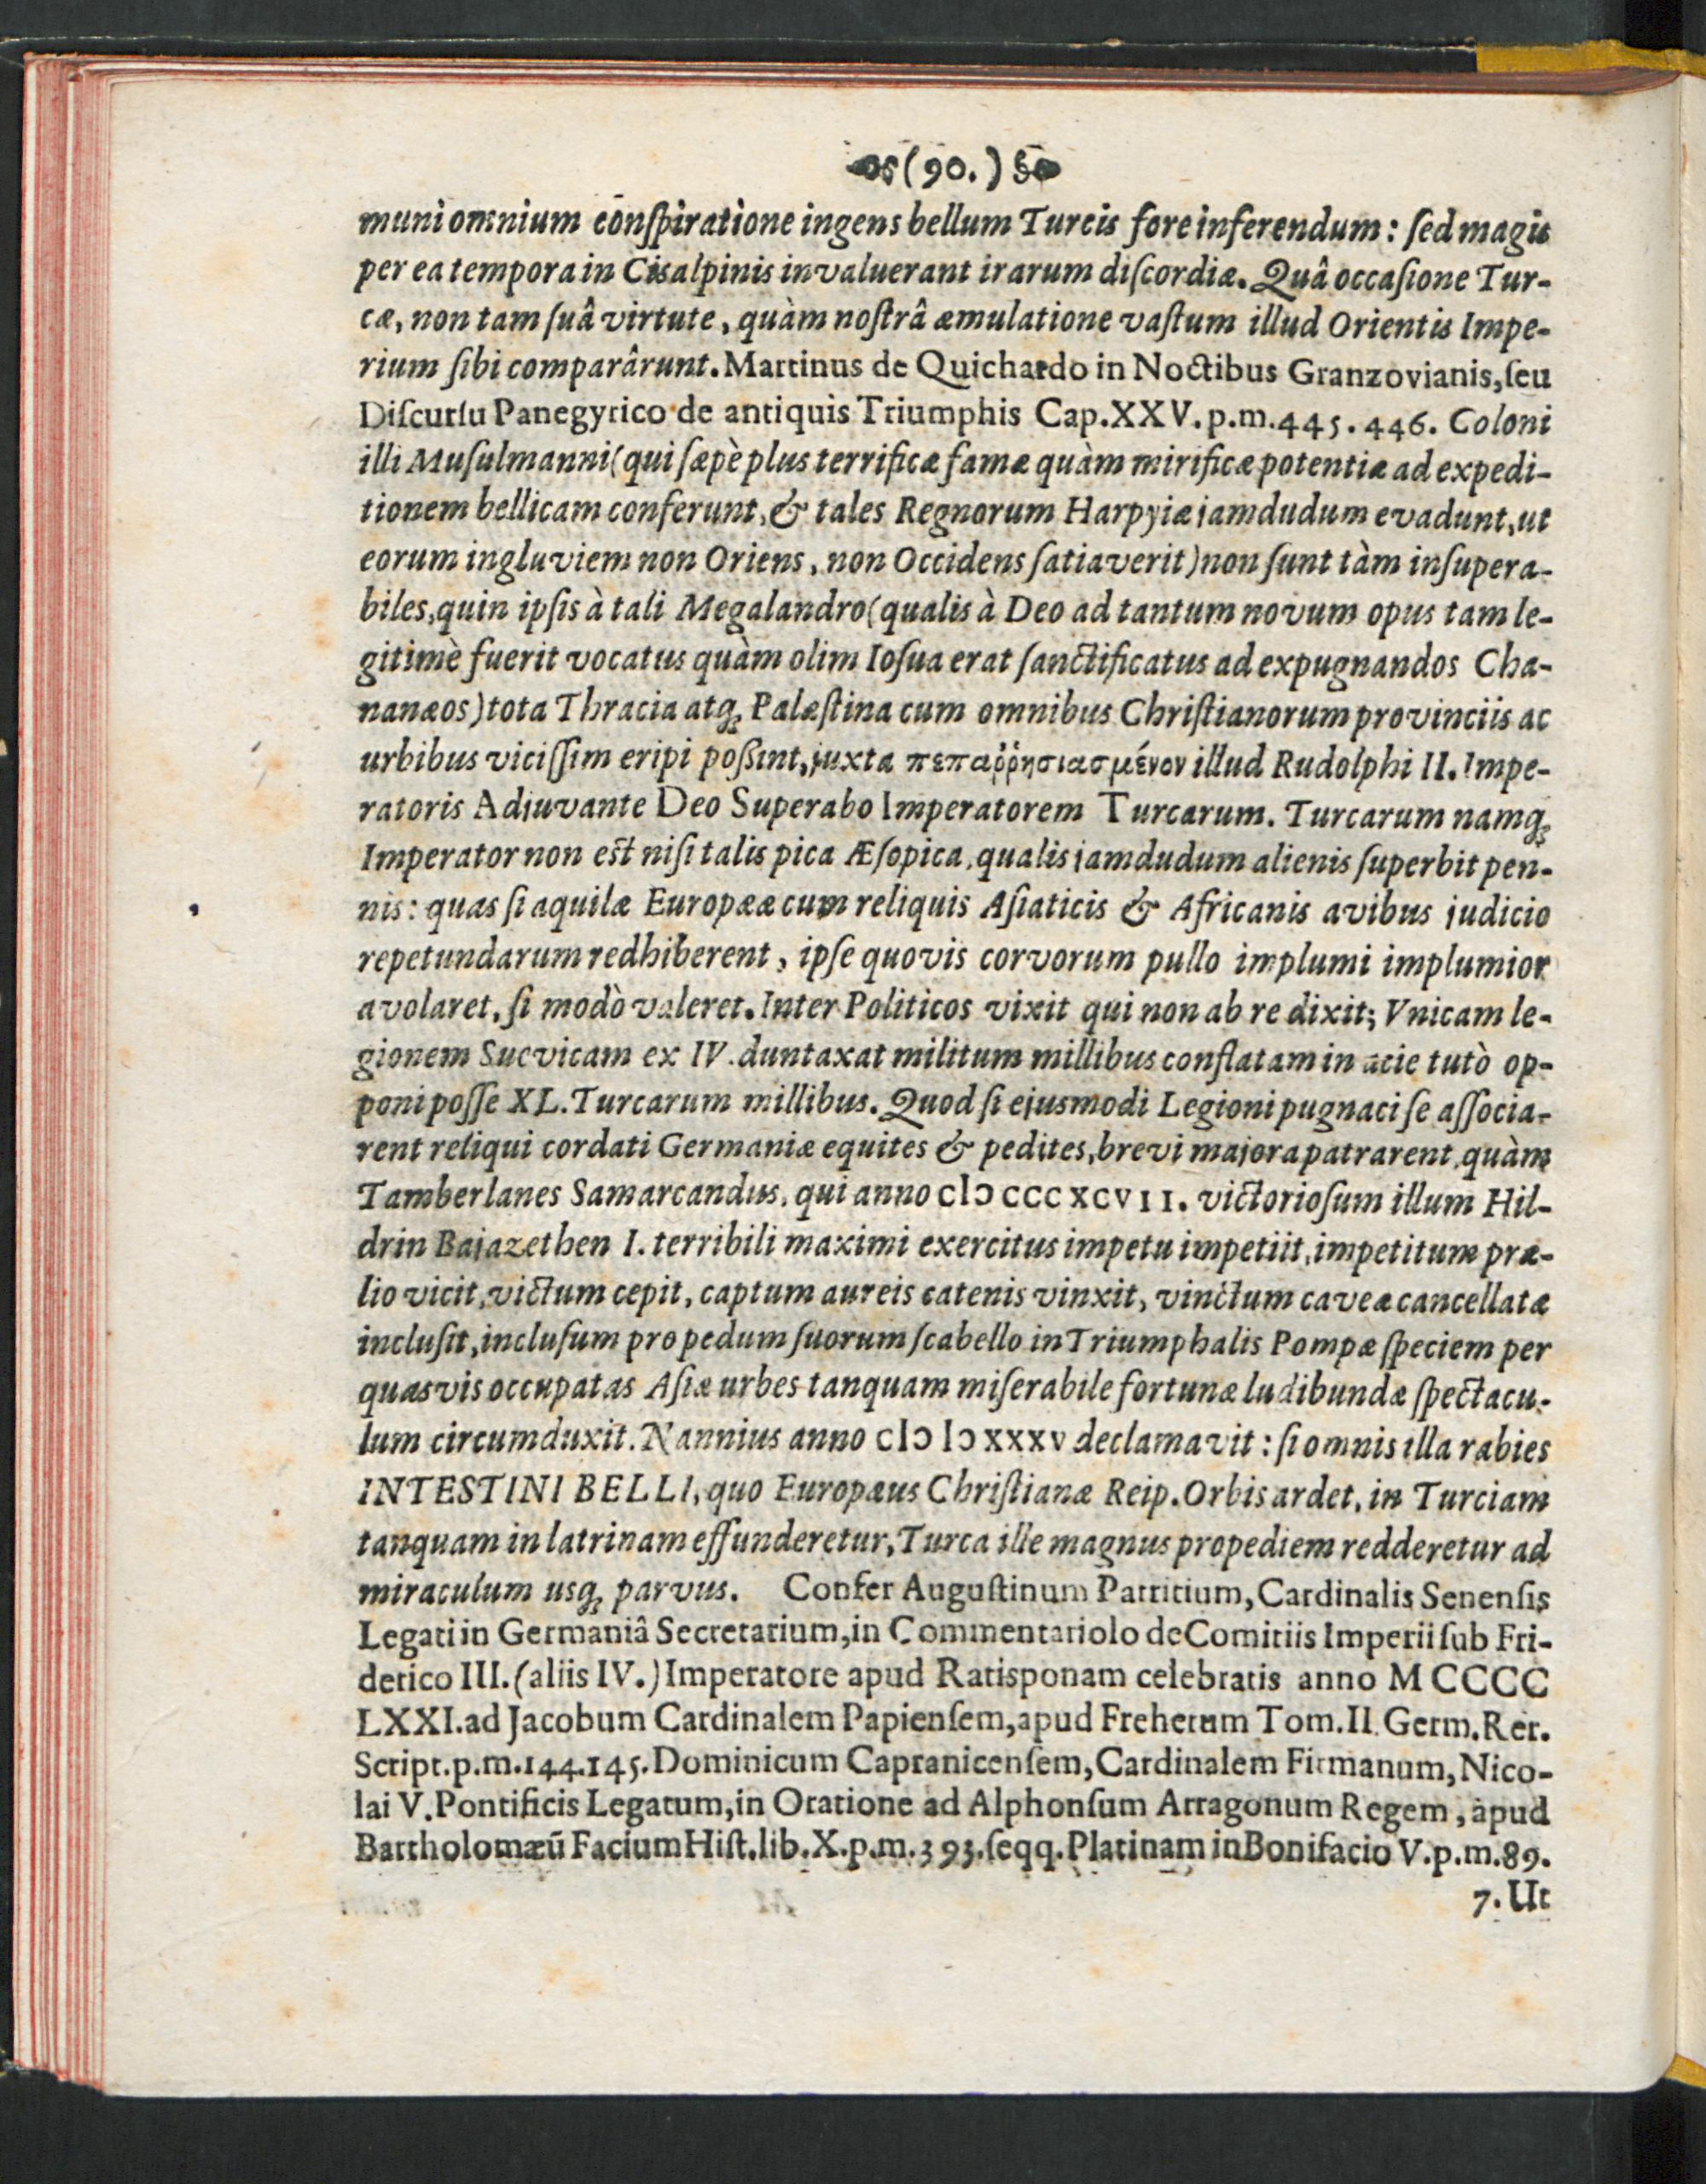 (90.)
muni omnium conſpiratione ingens bellum Turcis fore inferendum: ſed magis
per ea tempora in Cisalpinis invaluerant irarum diſcordiæ. Quâ occaſione Tur-
cæ, non tam ſuâ virtute, quàm noſtrâ æmulatione vaſtum illud Orientis Impe-
rium ſibi comparârunt. Martinus de Quichardo in Noctibus Granzovianis, ſeu
Diſcurſu Panegyrico de antiquis Triumphis Cap. XXV. p.m. 445. 446. Coloni
illi Muſulmanni (qui ſæpè plus terrificæ famæ quàm mirificæ potentiæ ad expedi-
tionem bellicam conferunt, & tales Regnorum Harpyiæ jamdudum evadunt, ut
eorum ingluviem non Oriens, non Occidens ſatiaverit) non ſunt tàm inſupera-
biles, quin ipſis à tali Megalandro (qualis à Deo ad tantum novum opus tam le-
gitimè fuerit vocatus quàm olim Ioſua erat ſanctificatus ad expugnandos Cha-
nanæos) tota Thracia atq; Palæſtina cum omnibus Chriſtianorum provinciis ac
urbibus viciſſim eripi poßint, juxta πεπαῤῥησιασμένον illud Rudolphi II. Impe-
ratoris Adjuvante Deo Superabo Imperatorem Turcarum. Turcarum namq;
Imperator non est niſi talis pica Æſopica, qualis jamdudum alienis ſuperbit pen-
nis: quas ſi aquilæ Europææ cum reliquis Aſiaticis & Africanis avibus judicio
repetundarum redhiberent, ipſe quovis corvorum pullo implumi implumior
avolaret, ſi modò valeret. Inter Politicos vixit qui non ab re dixit; Vnicam le-
gionem Suevicam ex IV. duntaxat militum millibus conflatam in acie tutò op-
poni poſſe XL. Turcarum millibus. Quod ſi ejusmodi Legioni pugnaci ſe aſſocia-
rent reliqui cordati Germaniæ equites & pedites, brevi majora patrarent, quàm
Tamberlanes Samarcandus, qui anno cIↄ cccxcvII. victorioſum illum Hil-
drin Bajazethen I. terribili maximi exercitus impetu impetiit, impetitum præ-
lio vicit, victum cepit, captum aureis catenis vinxit, vinctum caveæ cancellatæ
incluſit, incluſum pro pedum ſuorum ſcabello in Triumphalis Pompæ ſpeciem per
quasvis occupatas Aſiæ urbes tanquam miſerabile fortunæ ludibundæ ſpectacu-
lum circumduxit. Nannius anno cIↄ Iↄ xxxv declamavit: ſi omnis illa rabies
INTESTINI BELLI, quo Europæus Chriſtianæ Reip. Orbis ardet, in Turciam
tanquam in latrinam effunderetur, Turca ille magnus propediem redderetur ad
miraculum usq; parvus. Confer Auguſtinum Patritium, Cardinalis Senenſis
Legati in Germaniâ Secretarium, in Commentariolo de Comitiis Imperii ſub Fri-
derico III. (aliis IV.) Imperatore apud Ratisponam celebratis anno MCCCC
LXXI. ad Jacobum Cardinalem Papienſem, apud Freherum Tom. II. Germ. Rer.
Script. p.m. 144. 145. Dominicum Capranicenſem, Cardinalem Firmanum, Nico-
lai V. Pontificis Legatum, in Oratione ad Alphonſum Arragonum Regem, apud
Bartholomæū Facium Hiſt. lib. X. p.m. 393. ſeqq. Platinam in Bonifacio V. p.m. 89.
7. Ut